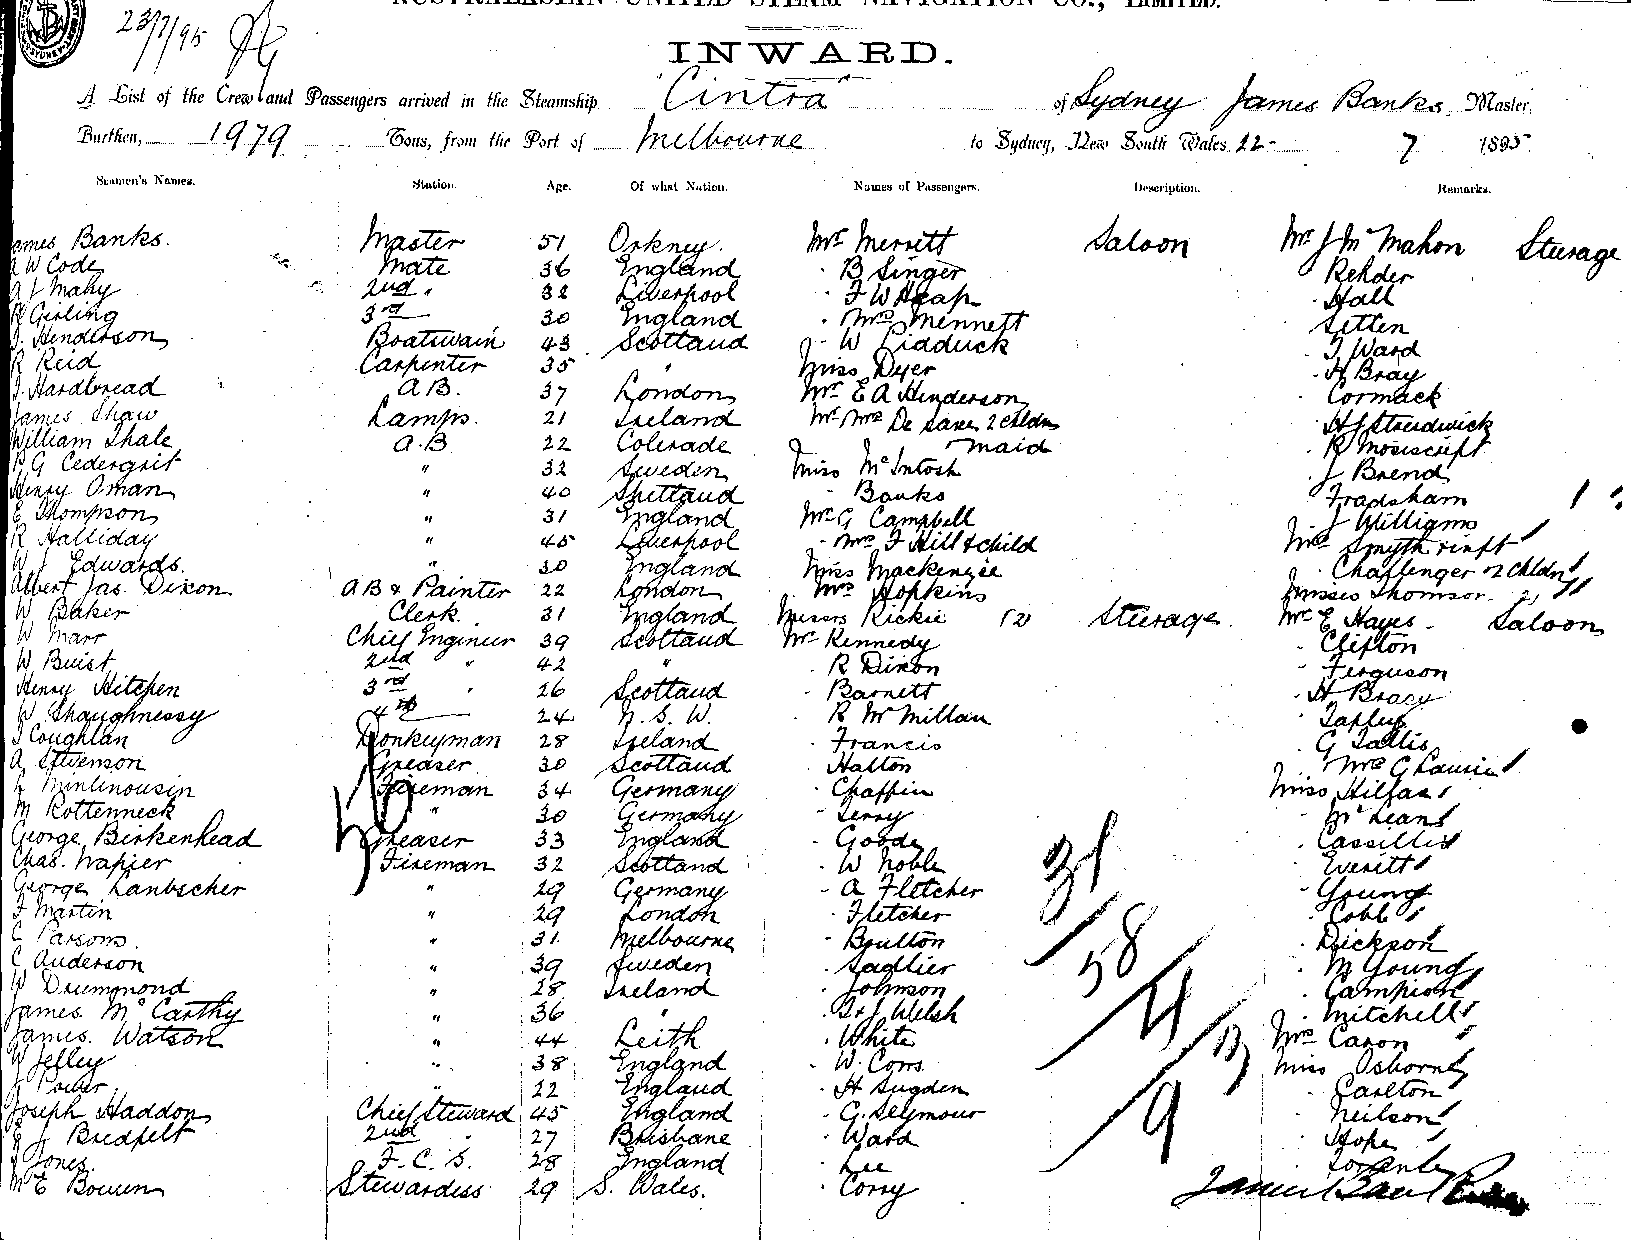 AUSTRALASIAN UNITED STEAM NAVIGATION CO., LIMITED.
23/7/95
INWARD.
A List of the Crew and Passengers arrived in the Steamship "Cintra" of Sydney James Banks, Master,
Burthen, 1979 Tons, from the Port of Melbourne to Sydney, New South Wales 22- 7 1895
Seamen's Names. Station. Age. Of what Nation. Names of Passengers. Description. Remarks.
James Banks. Master 51 Orkney. Mr Merrett Saloon Mr J McMahon Steerage
A W Code Mate 36 England " B Singer " Rehder
A J Mahy 2nd " 32 Liverpool " F W Heap " Hall
R Girling 3rd 30 England " Mrs Mennett Setten
J. Henderson Boatswain 43 Scotland " W Pidduck " J Ward
R Reid Carpenter 35 " Miss Dyer " H Bray
J. Hardbread A B. 37 London Mr E A Henderson " Cormack
James Shaw Lamps. 21 Ireland Mr Mrs De Saxe 2 chldn " H J Strudwick
William Thale A.B 22 Colerade maid " R
P G Cedergrit " 32 Sweden Miss McIntosh " J Brend
Henry Oman " 40 Shetland " Banks " Fradsham
E Thompson " 31 England Mr G Campbell " J Williams
R Halliday " 45 Liverpool " Mrs F Hill & child Mrs Smyth & inft
W J Edwards. " 30 England Miss Mackenzie " Challenger & 2 chldn
Albert Jas. Dixon A B & Painter 22 London Mrs Hopkins Misses Thomson 2
W Baker Clerk. 31 England Messrs Rickie (2) Steerage Mr E Hayes. Saloon
W Marr Chief Engineer 39 Scotland Mr Kennedy " Clifton
W Buist 2nd " 42 " " R Dixon " Ferguson
Henry Hitchen 3rd " 26 Scotland " Barnett " H Bracy
W. Shaughnessy 4th 24 N. S. W. " R McMillan " Tapley
J Coughlan Donkeyman 28 Ireland " Francis " G Tallis
A Stevenson Greaser 30 Scotland " Halton " Mrs G Laurie
Fireman 34 Germany " Chaffin Miss Hilfas
M Rottenneck " 30 Germany " Terry " McLean
George Birkenhead Greaser 33 England " Goode " Cassillis
Chas. Napier Fireman 32 Scotland " W Noble " Everitt
George Lanbscher " 29 Germany " A Fletcher " Young
F Martin " 29 London " Fletcher " Cobb
C Parsons. " 31 Melbourne " Boulton " Dickson
C Anderson " 39 Sweden " Sadlier " M Young
W Drummond " 28 Ireland " Johnson " Campion
James McCarthy " 36 " " & J Welsh " Mitchell
James. Watson " 44 Leith " White Mrs Caron
W Jelley " 38 England " W. Corrs Miss Osborne
J Power 22 England " H Sugden " Carlton
Joseph Haddon Chief Steward 45 England " G. Seymour " Neilson
J Bredfelt 2nd " 27 Brisbane " Ward " Hope
J Jones. F. C. S. 28 England " Lee
M E Bowen Stewardess 29 S. Wales. " Corry
31
58
4
13
9
James Banks